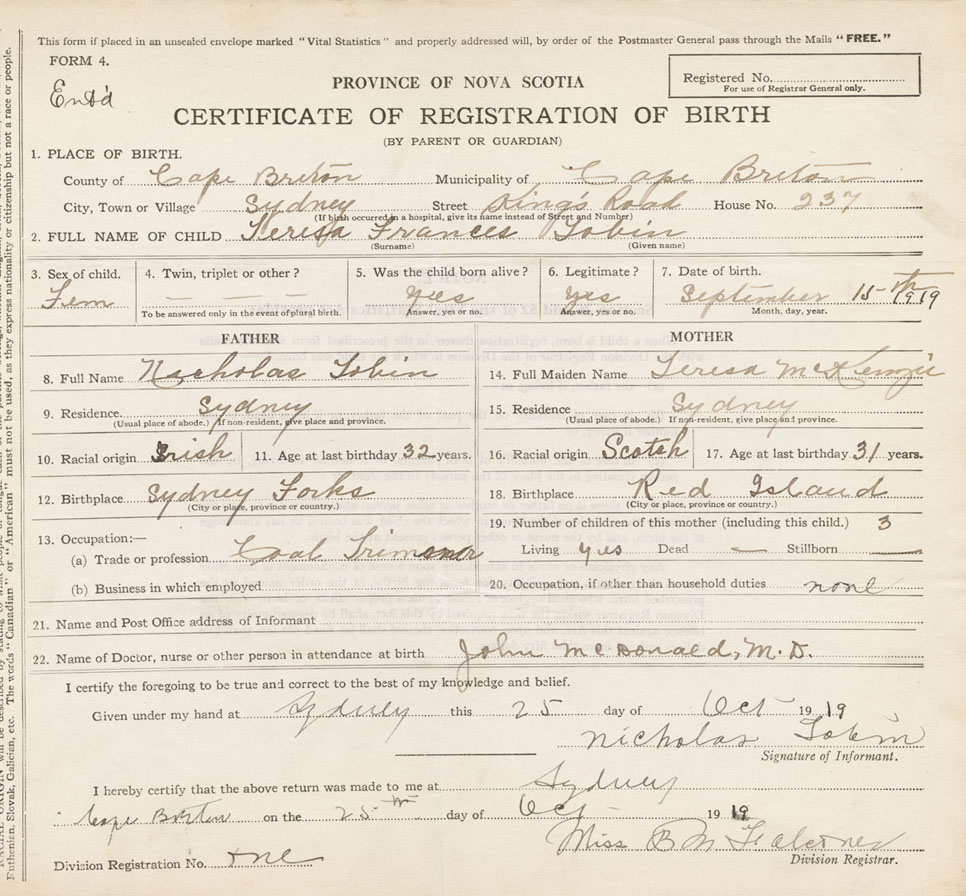 This form if placed in an unsealed envelope marked "Vital Statistics" and properly addressed will, by order of the Postmaster General pass through the Mails "FREE."
FORM 4.
Ent'd
PROVINCE OF NOVA SCOTIA
Registered No.
For use of Registrar General only.
CERTIFICATE OF REGISTRATION OF BIRTH
(BY PARENT OR GUARDIAN)
1. PLACE OF BIRTH.
County of Cape Breton Municipality of Cape Breton
City, Town or Village Sydney Street King's Road House No. 237
(If birth occurred in a hospital, give its name instead of Street and Number)
2. FULL NAME OF CHILD Teresa Frances Tobin
(Surname) (Given name)
3. Sex of child. 4. Twin, triplet or other? 5. Was the child born alive? 6. Legitimate? 7. Date of birth.
Fem — — — yes yes September 15th 1919
To be answered only in the event of plural birth. Answer, yes or no. Answer, yes or no. Month, day, year.
FATHER MOTHER
8. Full Name Nicholas Tobin 14. Full Maiden Name Teresa McKenzie
9. Residence Sydney 15. Residence Sydney
(Usual place of abode.) If non-resident, give place and province. (Usual place of abode.) If non-resident, give place and province.
10. Racial origin Irish 11. Age at last birthday 32 years. 16. Racial origin Scotch 17. Age at last birthday 31 years.
12. Birthplace Sydney Forks 18. Birthplace Red Island
(City or place, province or country.) (City or place, province or country.)
19. Number of children of this mother (including this child.) 3
13. Occupation:—
(a) Trade or profession Coal Living yes Dead — Stillborn —
(b) Business in which employed 20. Occupation, if other than household duties none
21. Name and Post Office address of Informant
22. Name of Doctor, nurse or other person in attendance at birth John McDonald, M.D.
I certify the foregoing to be true and correct to the best of my knowledge and belief.
Given under my hand at Sydney this 25 day of Oct 1919
Nicholas Tobin
Signature of Informant.
I hereby certify that the above return was made to me at Sydney
Cape Breton on the 25th day of Oct 1919
Miss B M
Division Registrar.
Division Registration No.
Ruthenian, Slovak, Galician, etc. The words "Canadian" or "American" must not be used, as they express nationality or citizenship but not a race or people.